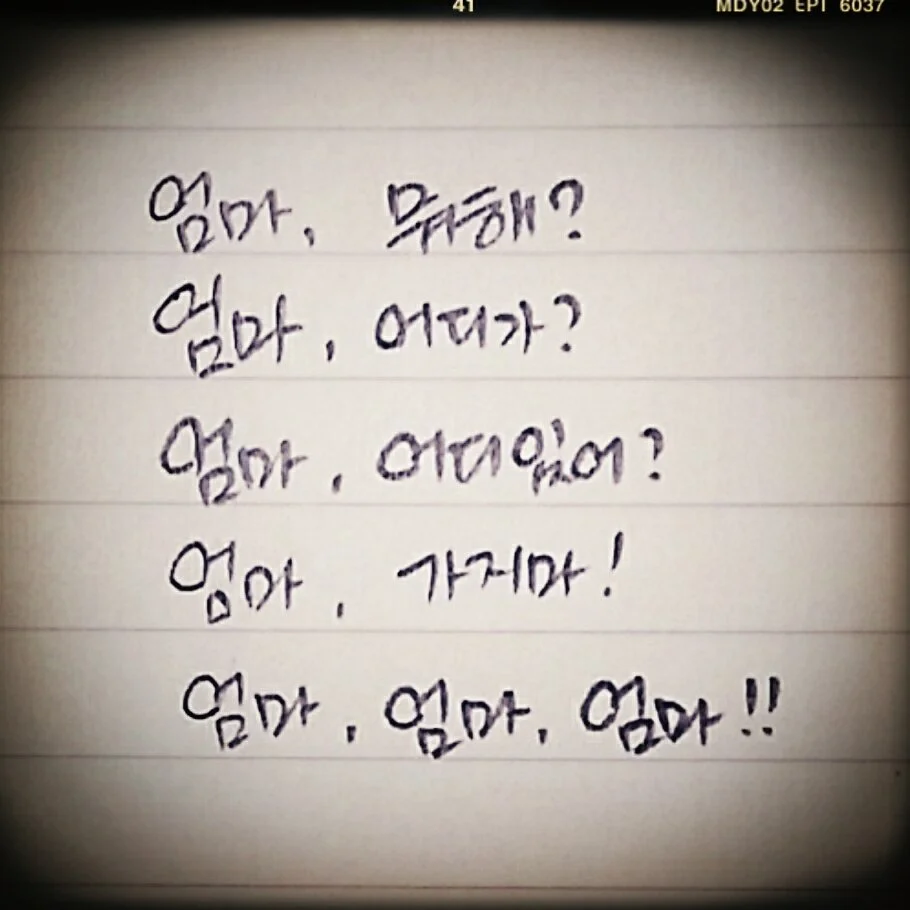 41 MDY02 EPT 6037
엄마, 뭐해?
엄마, 어디가?
엄마, 어디있어?
엄마, 가지마!
엄마, 엄마, 엄마!!